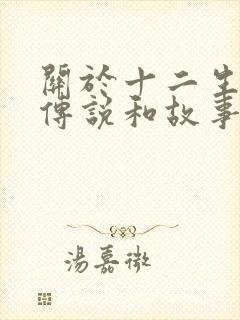 關於十二生
傳說和故事
湯嘉微